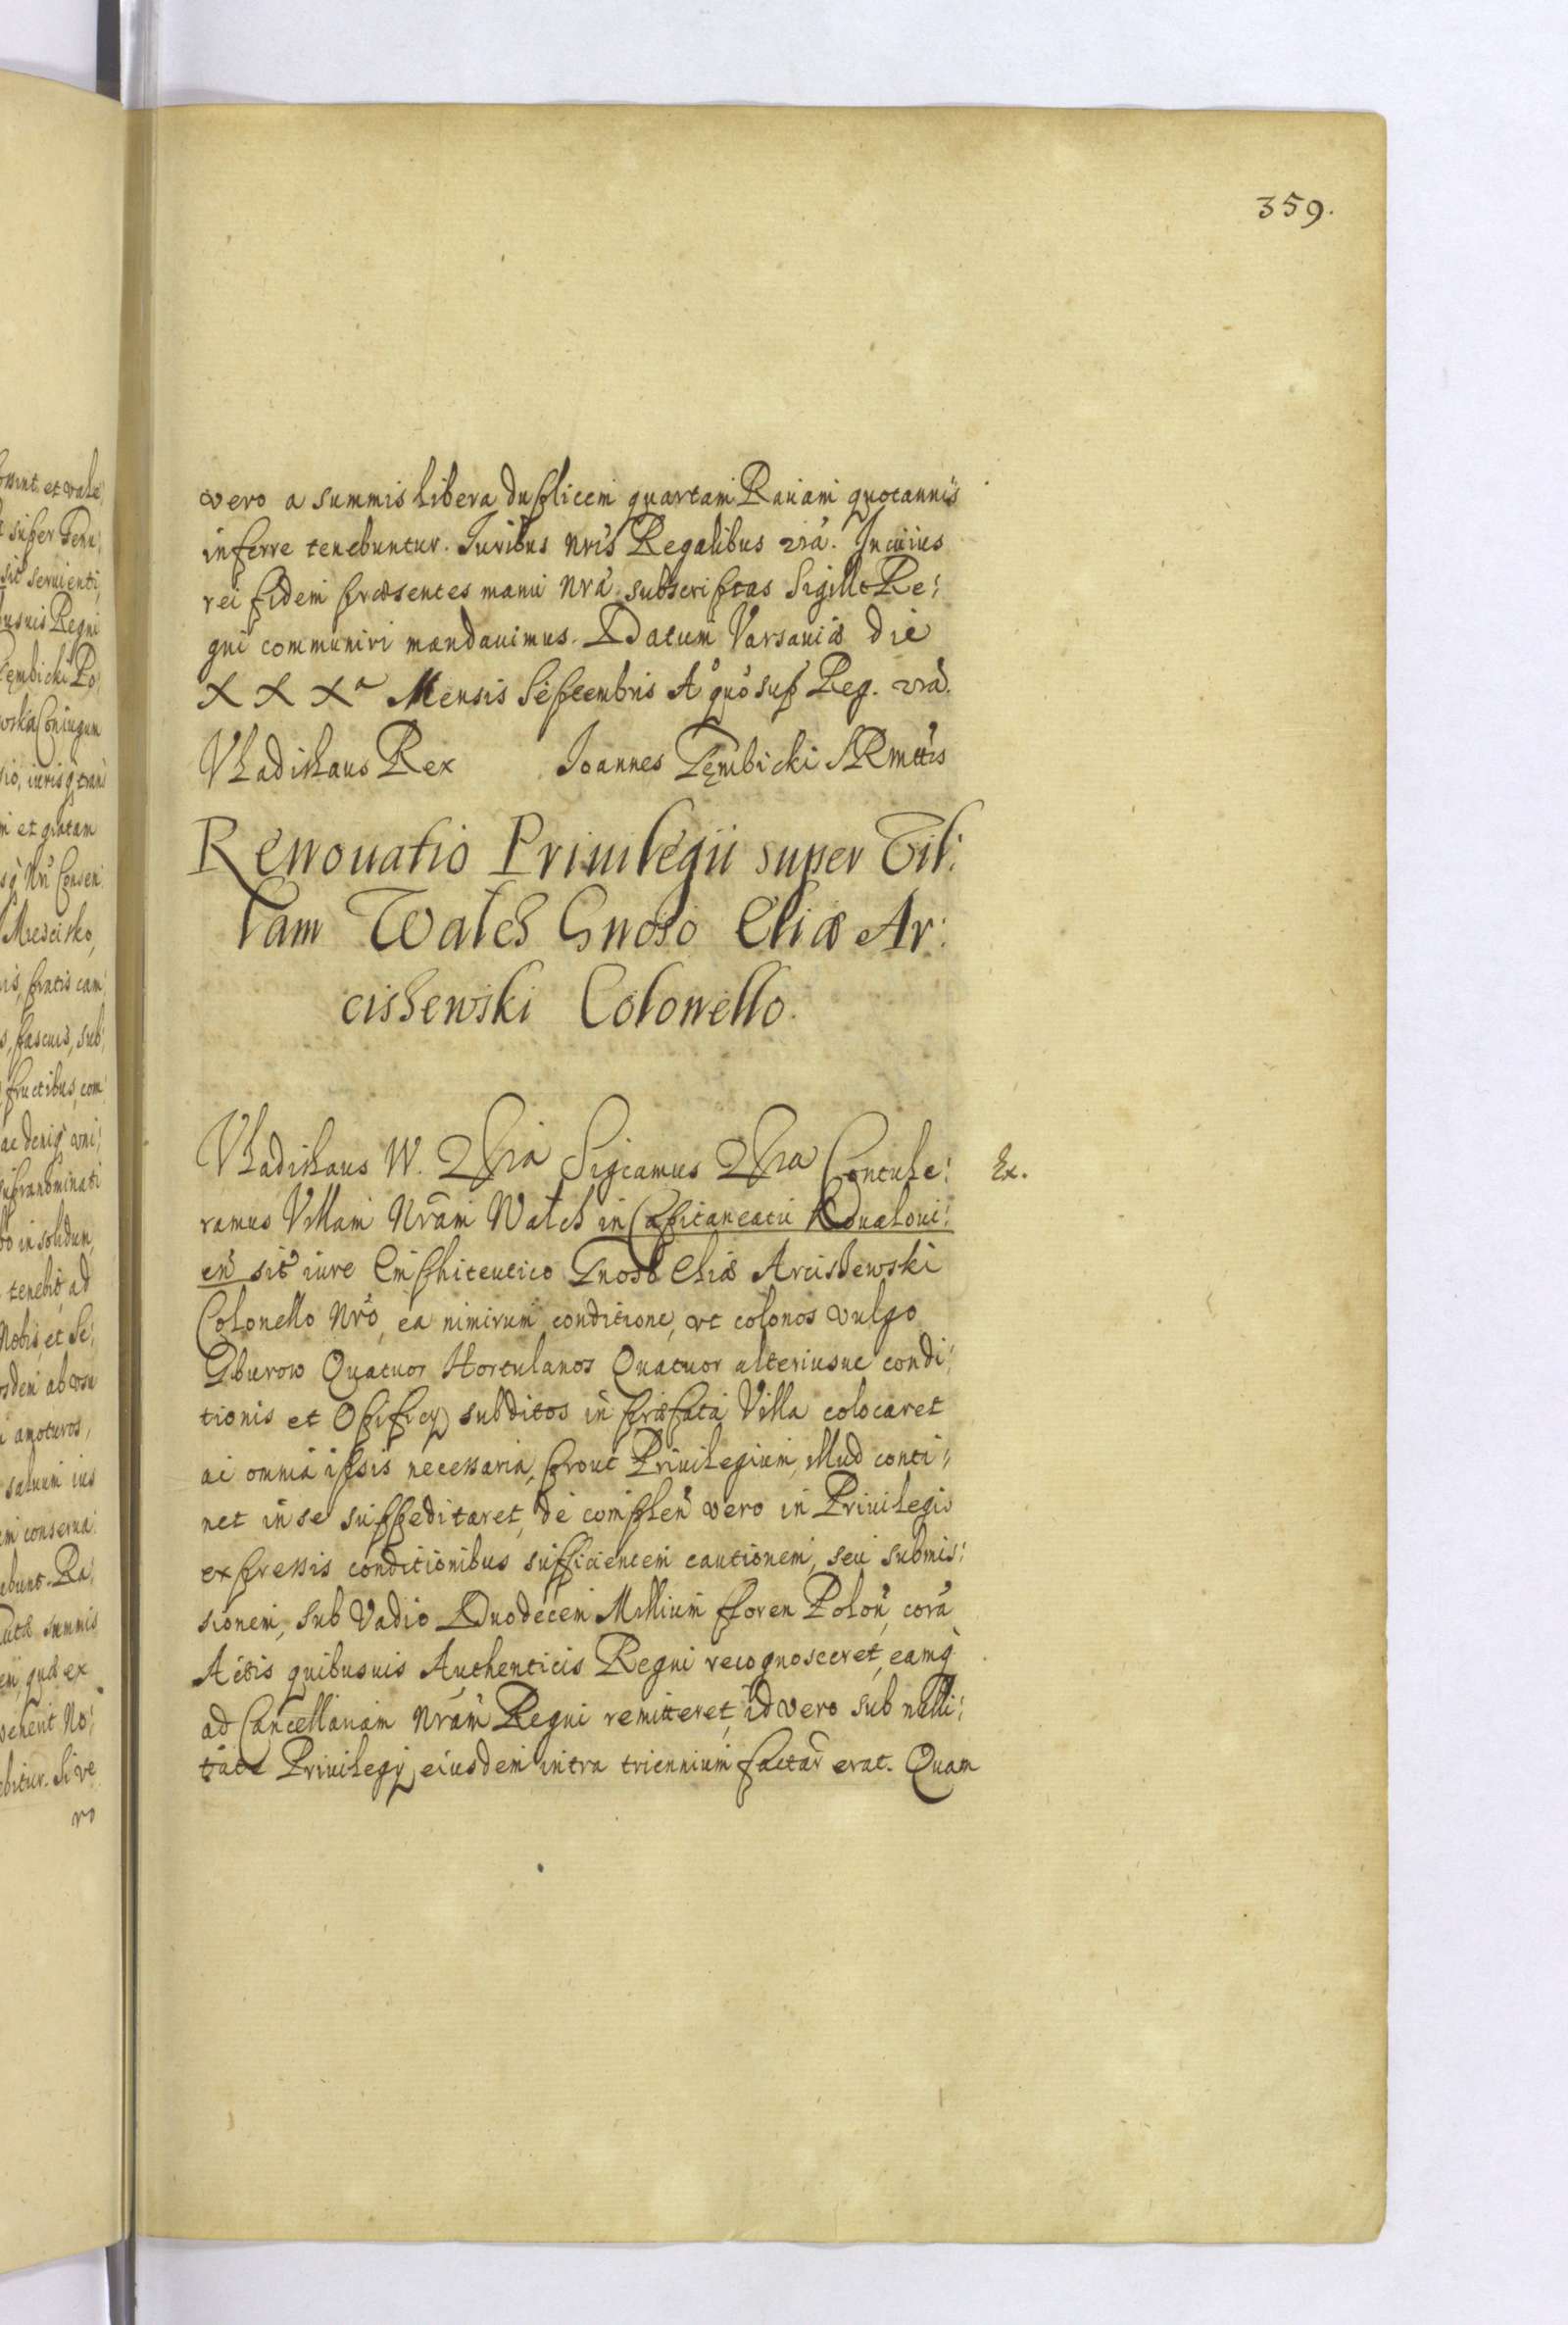 359.
vero a summis libera duplicem quartam Rauam quotannis
inferre tenebuntur. Iuribus nris Regalibus
In cuius
rei fidem præsentes manu nra subscriptas Sigillo Re:
gni communiri mandauimus. Datum Varsauiæ die
XXXa Mensis Septembris Ao quo sup Reg.
Vladislaus Rex Ioannes Gembicki SRmttis
Renouatio Priuilegii super Vil:
lam Walch Gnoso Eliæ Ar:
cishewski Colonello.
Vladislaus IV. Sigcamus Contule:
Ex.
ramus Villam Nram Walch in Capitaneatu Kowaloui:
en sit iure Emphiteutico Gnoso Eliæ Arcishewski
Colonello Nro, ea nimirum conditione, vt colonos vulgo
Gburow Quatuor Hortulanos Quatuor alteriusue condi:
tionis et Opificy subditos in præfata Villa colocaret
ac omnia ipsis necessaria, prout Priuilegium, illud conti:
net in se suppeditaret, de complen vero in Priuilegio
expressis conditionibus sufficientem cautionem, seu submis:
sionem, sub Vadio Duodecem Millium floren Polon, cora
Actis quibusuis Authenticis Regni recognosceret, eamq
ad Cancellariam Nram Regni remitteret, id vero sub nulli:
tate Priuilegy eiusdem intra triennium factur erat. Quam